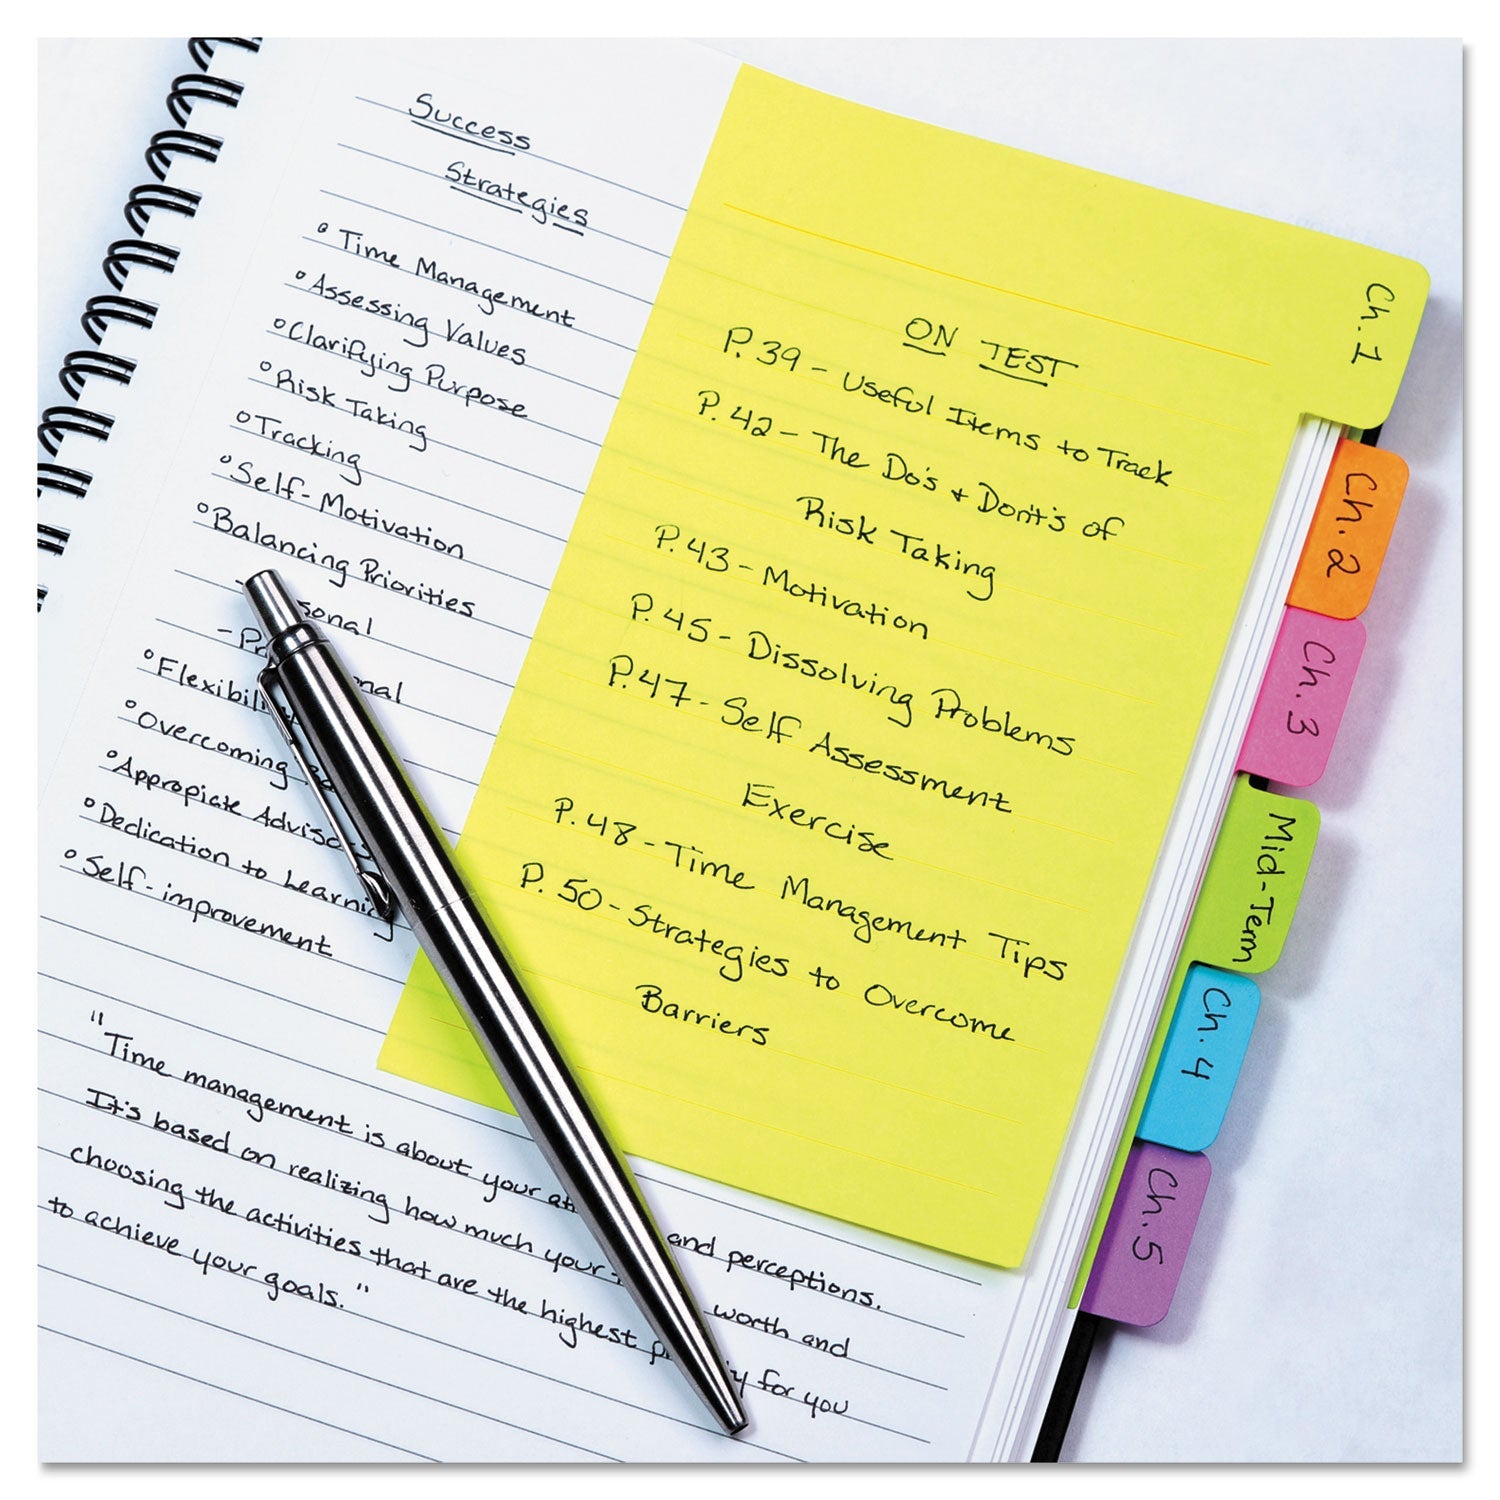 Success
Strategies
° Time Management
° Assessing Values
° Clarifying Purpose
° Risk Taking
° Tracking
° Self-Motivation
° Balancing Priorities
-
- 
° 
° Overcoming
° Appropiate
° Dedication to Learning
° Self-improvement
"Time management is about your and perceptions.
It's based on realizing how much your worth and
choosing the activities that are the highest for you
to achieve your goals."
ON TEST
P. 39 - Useful Items to Track
P. 42 - The Do's + Dont's of
Risk Taking
P. 43 - Motivation
P. 45 - Dissolving Problems
P. 47 - Self Assessment
Exercise
P. 48 - Time Management Tips
P. 50 - Strategies to Overcome
Barriers
Ch. 1
Ch. 2
Ch. 3
Mid-Term
Ch. 4
Ch. 5